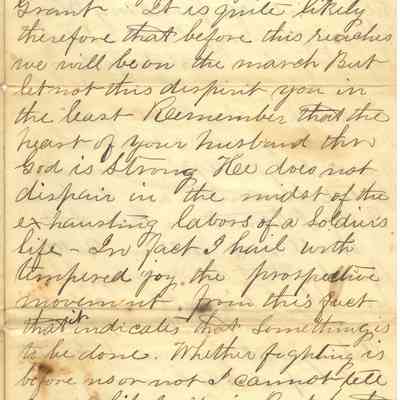 Grant. It is quite likely
therefore that before this reaches
we will be on the march But
let not this dispirit you in
the least Remember that the
heart of your husband thro
God is strong He does not
dispair in the midst of the
exhausting labors of a Soldiers
life - In fact I hail with
tempered joy, the prospective
movement from this fact
that it indicates that something is
to be done. Whether fighting is
before us or not I cannot tell